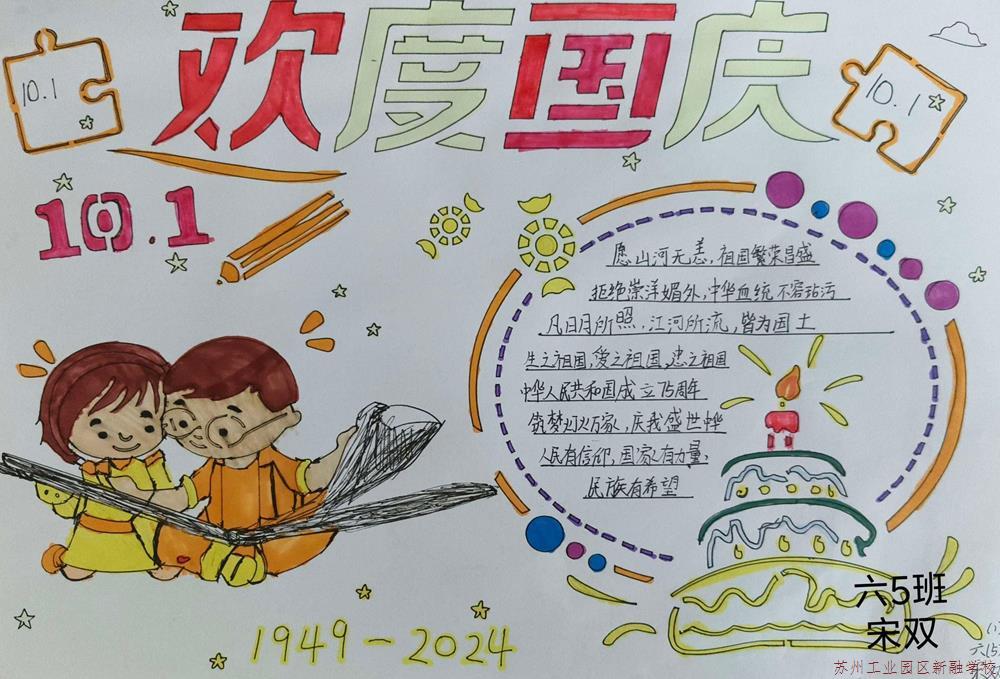 欢度国庆
10.1
10.1
10.1
愿山河无恙,祖国繁荣昌盛
拒绝崇洋媚外,中华血统不容玷污
凡日月所照,江河所流,皆为国土
生之祖国,爱之祖国,忠之祖国
中华人民共和国成立75周年
筑梦灯火万家,庆我盛世中华
人民有信仰,国家有力量,
民族有希望
1949-2024
六5班
宋双
六(5)
宋双
苏州工业园区新融学校